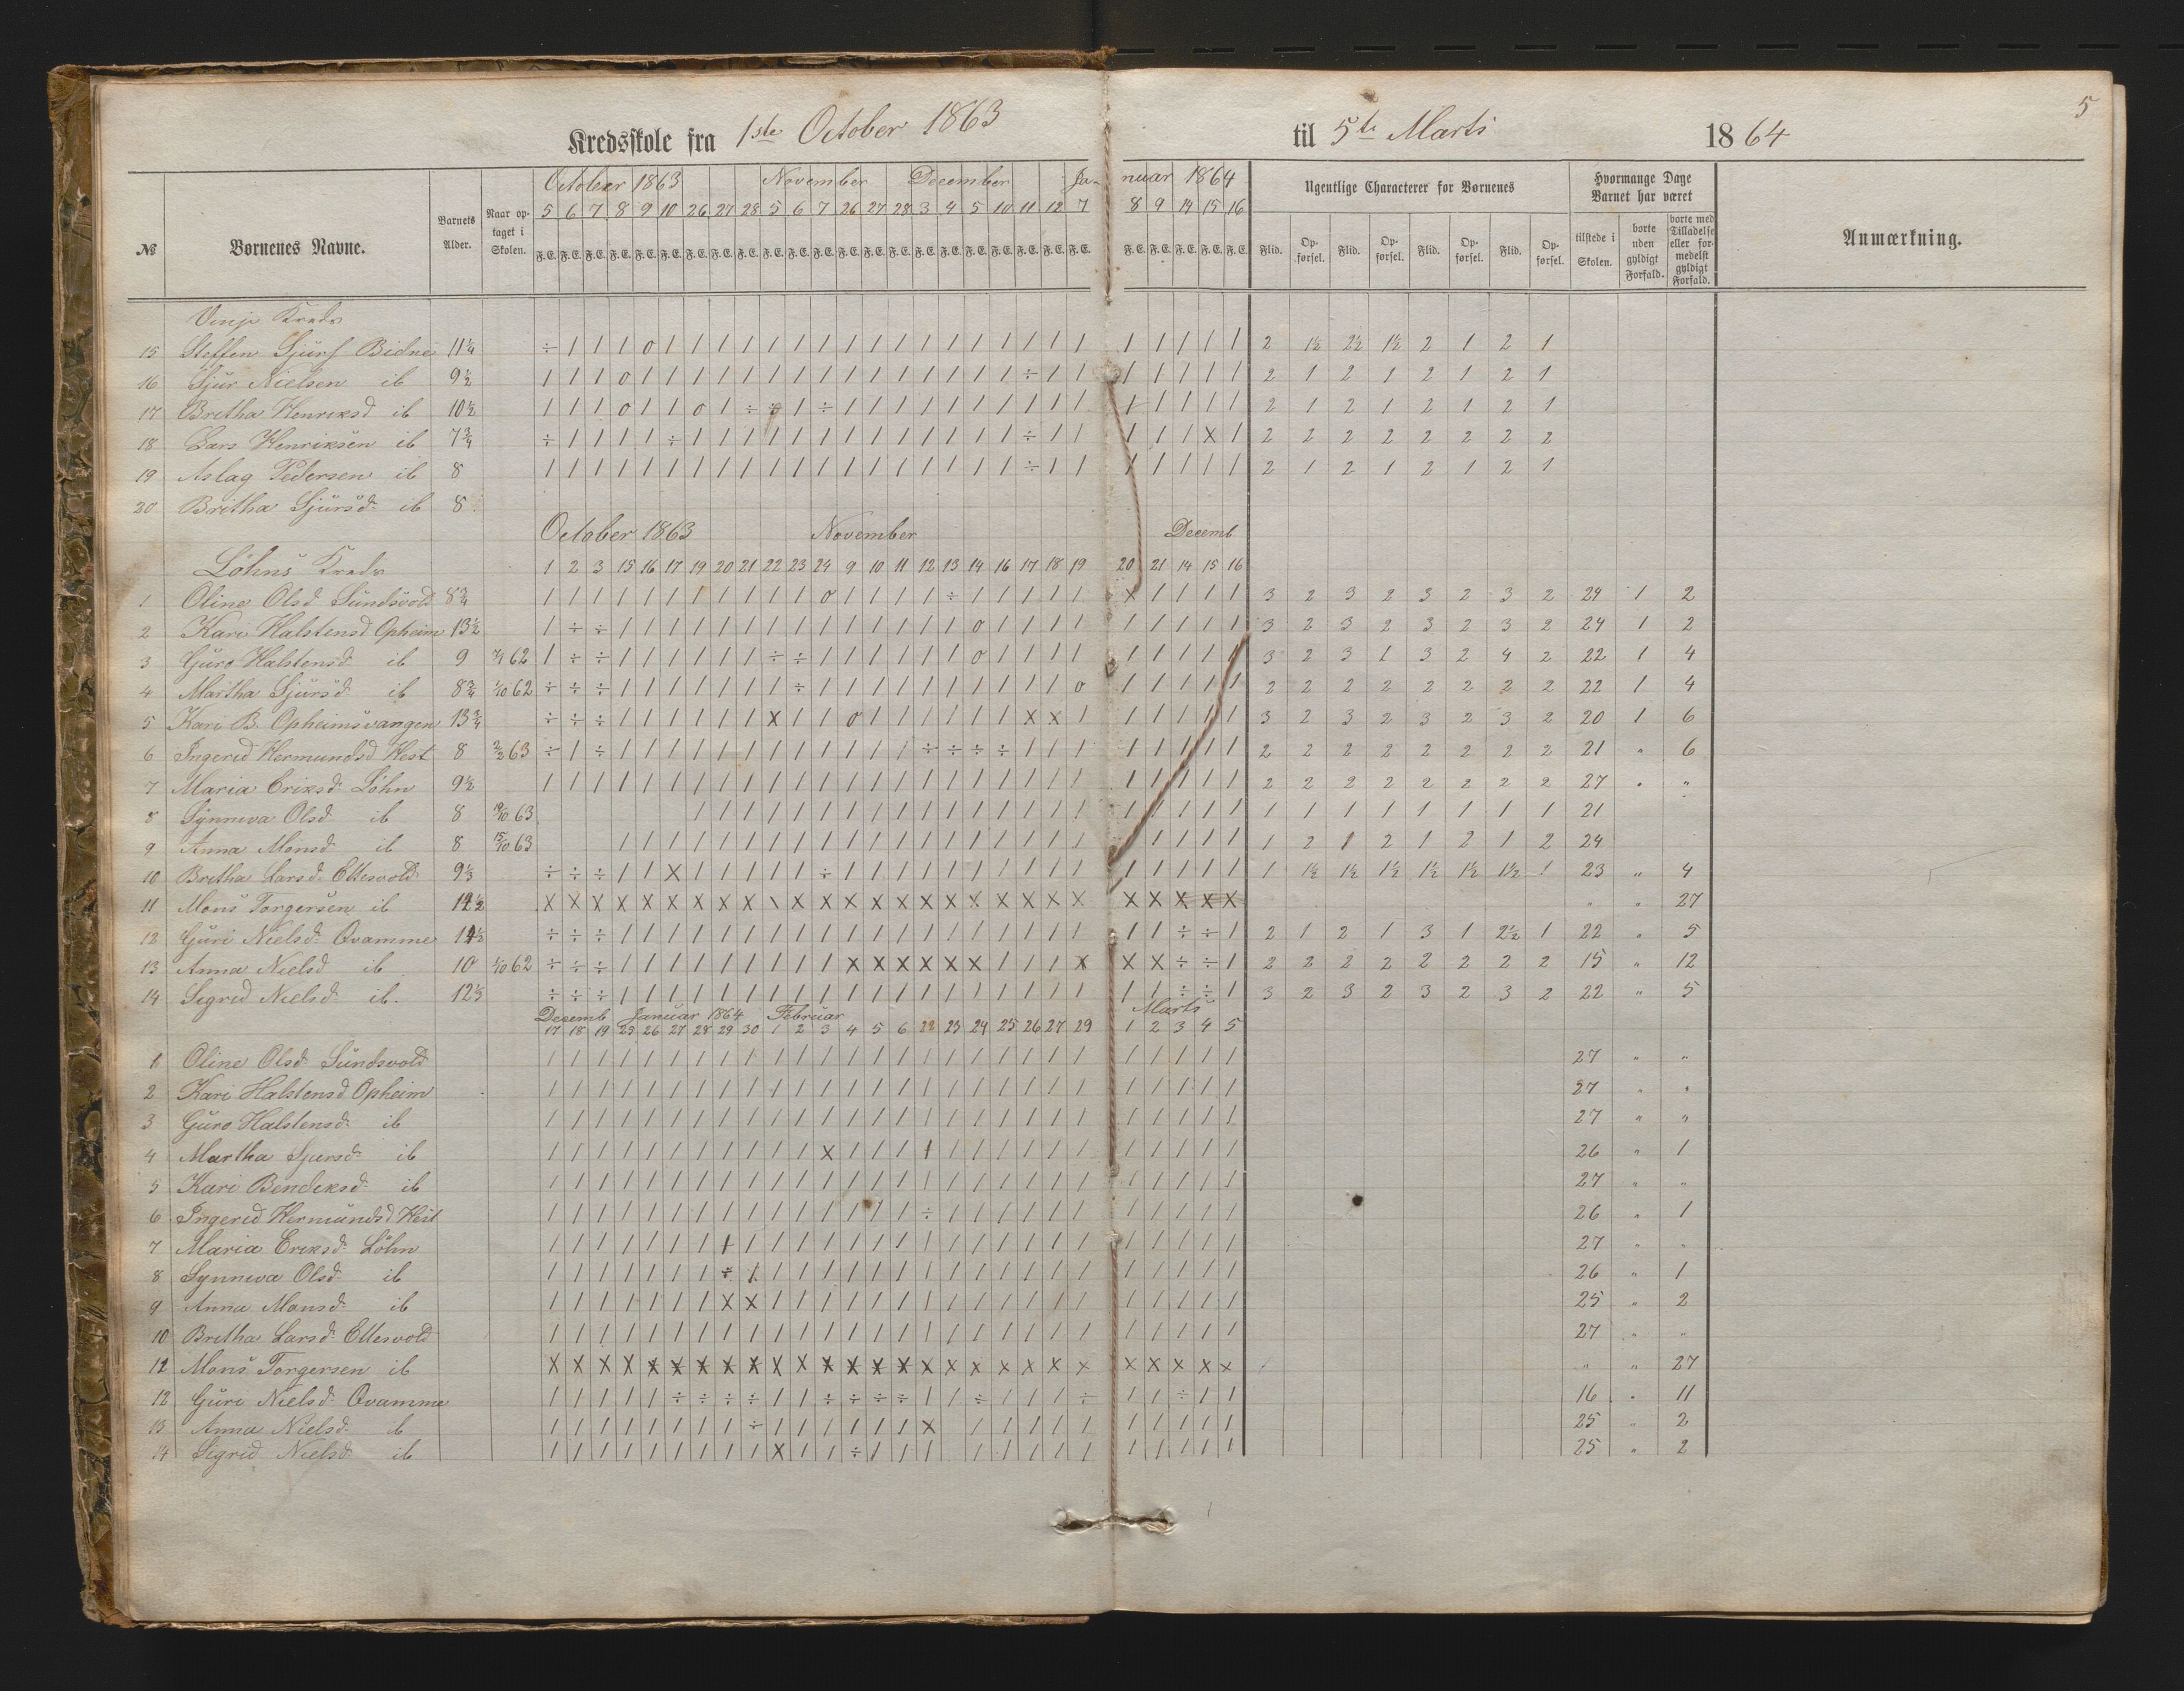 5
Kredsskole fra 1ste October 1863 til 5te Marts 1864
№ Børnenes Navne. Barnets Alder. Naar optaget i Skolen. October 1863 November December Januar 1864 Ugentlige Characterer for Børnenes Hvormange Dage Barnet har været Anmærkning.
5 6 7 8 9 10 26 27 28 5 6 7 26 27 28 3 4 5 10 11 12 7 8 9 14 15 16
F. E. F. E. F. E. F. E. F. E. F. E. F. E. F. E. F. E. F. E. F. E. F. E. F. E. F. E. F. E. F. E. F. E. F. E. F. E. F. E. F. E. F. E. F. E. F. E. F. E. F. E. F. E. Flid. Opførsel. Flid. Opførsel. Flid. Opførsel. Flid. Opførsel. tilstede i Skolen. borte uden gyldigt Forfald. borte med Tilladelse eller formedelst gyldigt Forfald.
Vinje Kreds
15 Steffen Sjurs Bidne 11¼ ÷ / / / 0 / / / / / / / / / / / / / / / / / / / / / / 2 1½ 2½ 1½ 2 1 2 1
16 Sjur Nielsen ib 9½ / / / 0 / / / / / / / / / / / / / / / ÷ / / / / / / / 2 1 2 1 2 1 2 1
17 Bretha Henriksd ib 10½ / / / 0 / / 0 / ÷ ÷ / ÷ / / / / / / / / / / / / / / / 2 1 2 1 2 1 2 1
18 Lars Henriksen ib 7¾ ÷ / / / / ÷ / / / / / / / / / / / / / ÷ / / / / / X / 2 2 2 2 2 2 2 2
19 Aslag Pedersen ib 8 / / / / / / / / / / / / / / / / / / / ÷ / / / / / / / 2 1 2 1 2 1 2 1
20 Britha Sjürsd ib 8
October 1863 November Decemb
Löhns Kreds 1 2 3 15 16 17 19 20 21 22 23 24 9 10 11 12 13 14 16 17 18 19 20 21 14 15 16
1 Oline Olsd Sündsvold 8¾ / / / / / / / / / / / 0 / / / / ÷ / / / / / X / / / / 3 2 3 2 3 2 3 2 24 1 2
2 Kari Halstensd Opheim 13½ / ÷ ÷ / / / / / / / / / / / / / / 0 / / / / / / / / / 3 2 3 2 3 2 3 2 24 1 2
3 Güro Halstensd ib 9 7/1 62 / ÷ ÷ / / / / / / ÷ ÷ / / / / / / 0 / / / / / / / / / 3 2 3 1 3 2 4 2 22 1 4
4 Martha Sjürsd ib 8¾ 1/10 62 ÷ ÷ ÷ / / / / / / / ÷ / / / / / / / / / / 0 / / / / / 2 2 2 2 2 2 2 2 22 1 4
5 Kari B. Opheimsvangen 13¾ ÷ ÷ ÷ / / / / / / X / / 0 / / / / / / X X / / / / / / 3 2 3 2 3 2 3 2 20 1 6
6 Ingerid Hermundsd Hest 8 2/2 63 ÷ / ÷ / / / / / / / / / / / / ÷ ÷ ÷ ÷ / / / / / / / / 2 2 2 2 2 2 2 2 21 " 6
7 Maria Eriksd Löhn 9½ / / / / / / / / / / / / / / / / / / / / / / / / / / / 2 2 2 2 2 2 2 2 27 " "
8 Synneva Olsd ib 8 19/10 63 / / / / / / / / / / / / / / / / / / / / / 1 1 1 1 1 1 1 1 21
9 Anna Monsd ib 8 15/10 63 / / / / / / / / / / / / / / / / / / / / / / / / 1 2 1 2 1 2 1 2 24
10 Bretha Larsd Ellesvold 9⅓ ÷ ÷ ÷ / / X / / / / / ÷ / / / / / / / / / / / / / / / 1 1½ 1½ 1½ 1½ 1½ 1½ 1 23 " 4
11 Mons Torgersen ib 12½ X X X X X X X X X X X X X X X X X X X X X X X X X X X " " 27
12 Güri Nielsd Qvamme 14½ ÷ ÷ ÷ / / / / / / / / / / / / / / / / / / / / / ÷ ÷ / 2 1 2 1 3 1 2½ 1 22 " 5
13 Anna Nielsd ib 10 1/10 62 ÷ ÷ ÷ / / / / / / / / / X X X X X X / / / X X X ÷ ÷ / 2 2 2 2 2 2 2 2 15 " 12
14 Sigrid Nielsd ib. 12⅓ ÷ ÷ ÷ / / / / / / / / / / / / / / / / / / / / / ÷ ÷ / 3 2 3 2 3 2 3 2 22 " 5
Decemb Januar 1864 Februar Marts
17 18 19 25 26 27 28 29 30 1 2 3 4 5 6 22 23 24 25 26 27 29 1 2 3 4 5
1 Oline Olsd Sündsvold / / / / / / / / / / / / / / / / / / / / / / / / / / / 27 " "
2 Kari Halstensd Opheim / / / / / / / / / / / / / / / / / / / / / / / / / / / 27 " "
3 Güro Halstensd ib / / / / / / / / / / / / / / / / / / / / / / / / / / / 27 " "
4 Martha Sjursd ib / / / / / / / / / / / X / / / / / / / / / / / / / / / 26 " 1
5 Kari Bendiksd ib / / / / / / / / / / / / / / / / / / / / / / / / / / / 27 " "
6 Ingerid Hermündsd Hest / / / / / / / / / / / / / / / ÷ / / / / / / / / / / / 26 " 1
7 Maria Eriksd Löhn / / / / / / / / / / / / / / / / / / / / / / / / / / / 27 " "
8 Synneva Olsd ib / / / / / / / ÷ / / / / / / / / / / / / / / / / / / / 26 " 1
9 Anna Monsd ib / / / / / / / X X / / / / / / / / / / / / / / / / / / 25 " 2
10 Bretha Larsd Ellesvold / / / / / / / / / / / / / / / / / / / / / / / / / / / 27 " "
11 Mons Torgersen ib X X X X X X X X X X X X X X X X X X X X X X X X X X X " " 27
12 Güri Nielsd Qvamme / / / / / ÷ ÷ ÷ ÷ / / ÷ ÷ ÷ ÷ / / ÷ / / / ÷ / / ÷ / / 16 " 11
13 Anna Nielsd ib / / / / / / / / ÷ / / / / / / X / / / / / / / / / / 25 " 2
14 Sigrid Nielsd ib / / / / / / / / / X / / ÷ / / / / / / / / / / / / / 25 " 2